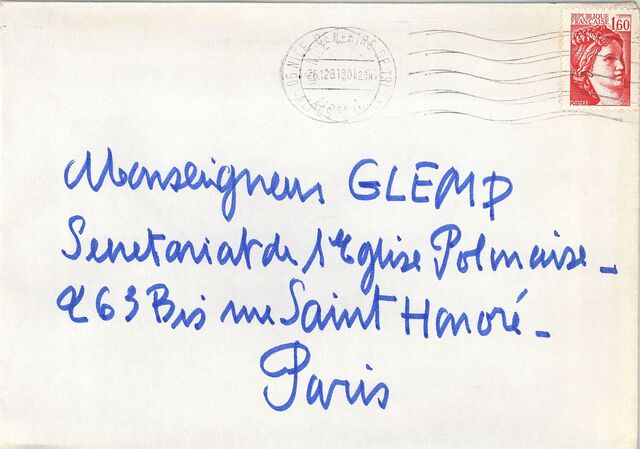 RÉPUBLIQUE FRANÇAISE 1,60
POSTES
06 NICE CENTRE DE TRI
Monseigneur GLEMP
Secretariat de l'Eglise Polonaise_
263 Bis rue Saint Honoré_
Paris